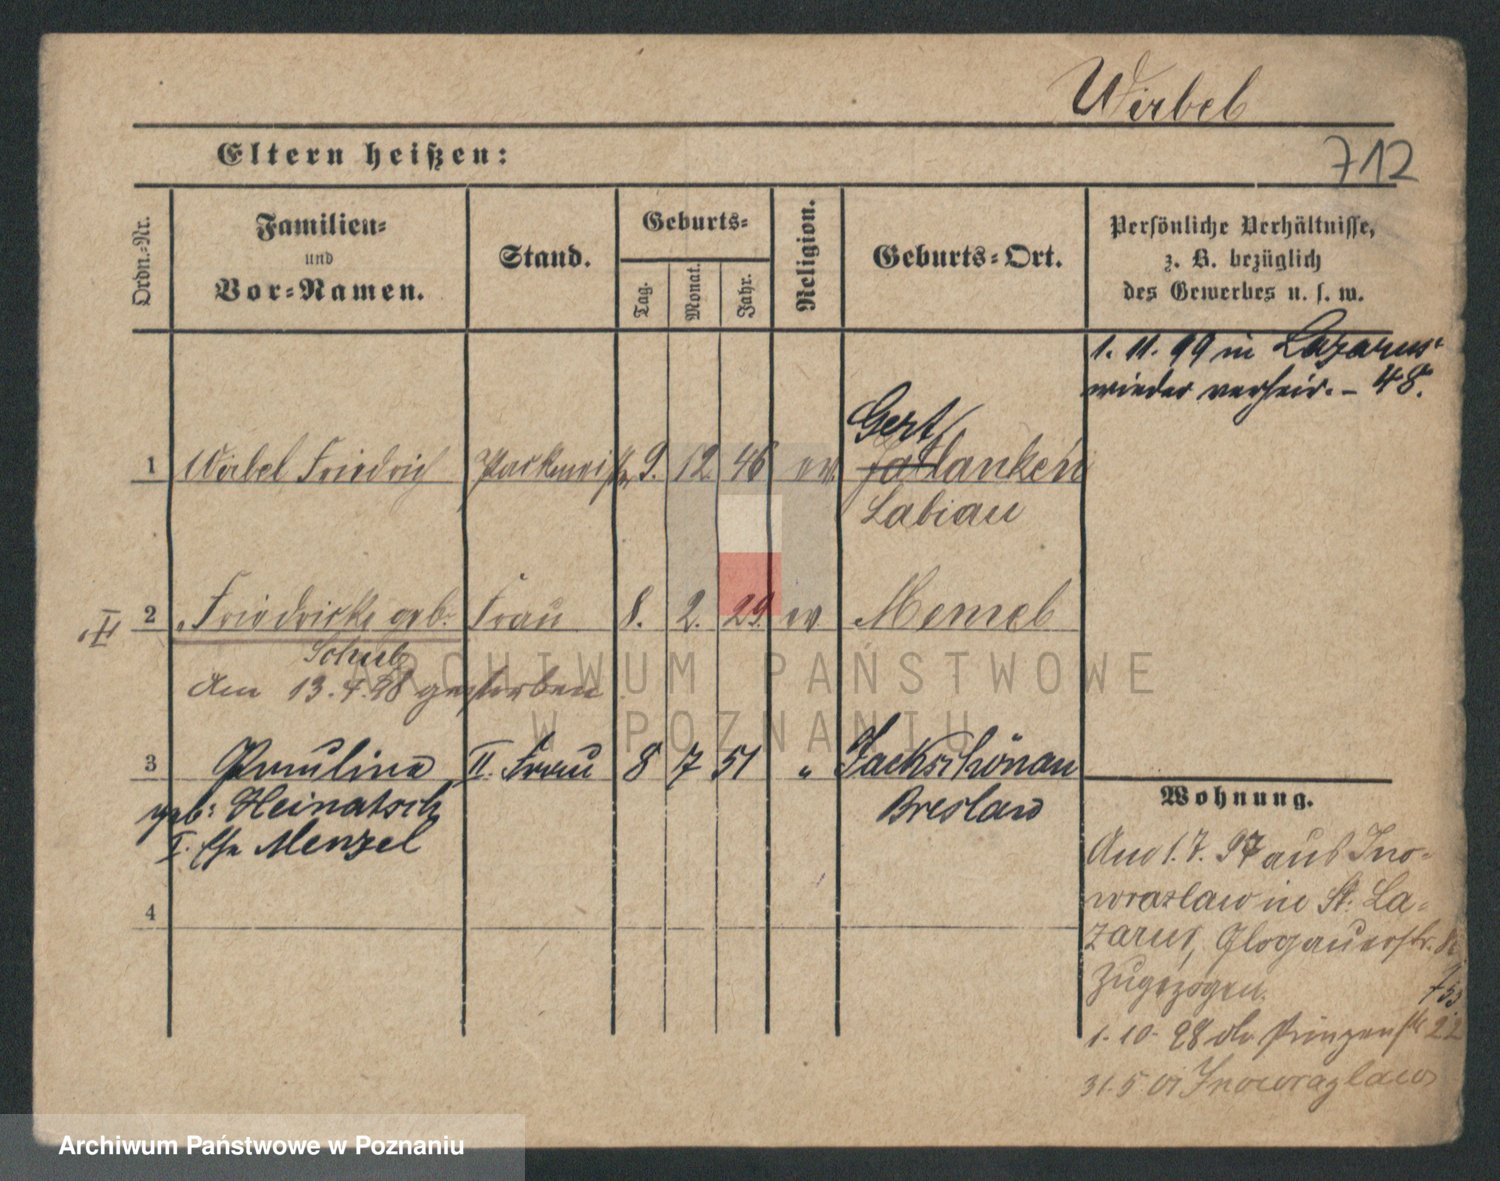 Wirbel
712
Eltern heißen:
Ordn.=Nr.
Familien=
und
Vor=Namen.
Stand.
Geburts=
Tag.
Monat.
Jahr.
Religion.
Geburts=Ort.
Persönliche Verhältnisse,
z. B. bezüglich
des Gewerbes u. s. w.
1. 11. 99 in Lazarus
wieder verheir. - 48.
Gert
1 Wirbel Friedrich Packmeister 9. 12. 46 ev. lauken
Labiau
II 2 Friedricke geb. Frau 8. 2. 29. ev Memel
Schul
Am 13. 4. 98 gestorben
3 Pauline II. Frau 8 7 51 " Jackschönau
geb: Heinatsch Breslau
I. Ehe Menzel
4
Wohnung.
Am 1. 7. 97 aus Ino-
wrazlaw in St. La-
zarus, Glogauerstr.
zugezogen.
1. 10. 98 Prinzenstr 22
31. 5 01 Inowrazlaw
ARCHIWUM PAŃSTWOWE
W POZNANIU
Archiwum Państwowe w Poznaniu